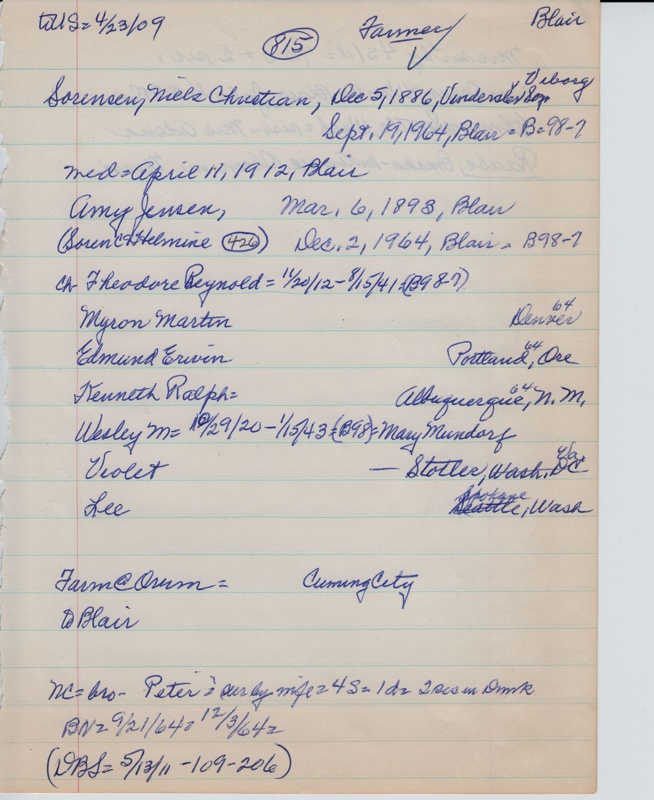 to US = 4/23/09 Farmer Blair
815
Viborg
Sorensen, Niels Christian, Dec 5, 1886,
Sept. 19, 1964, Blair = B = 98-7
med = April 11, 1912, Blair
Amy Jensen, Mar. 6, 1893, Blair
(Soren C & Helmine 426) Dec. 2, 1964, Blair = B98-7
CA Theodore Reynold = 11/20/12 - 8/15/41 = (B98-7)
Myron Martin Denver 64
Edmund Ervin Portland, 64 Ore
Kenneth Ralph = Albuquerque, 64 N.M.
Wesley M = 10/29/20 - 1/15/43 = (B98) = Mary Mundorf
Violet — Stotler, Wash, DC Va.
Lee Spokane Seattle, Wash
Farm @ Orum = Cuming City
to Blair
NC = bro - Peter = sur by wife = 4S = 1d = 2 sis in Dnmk
BN = 9/21/64 = 12/3/64 =
(DBS = 5/13/11 - 109 - 206)